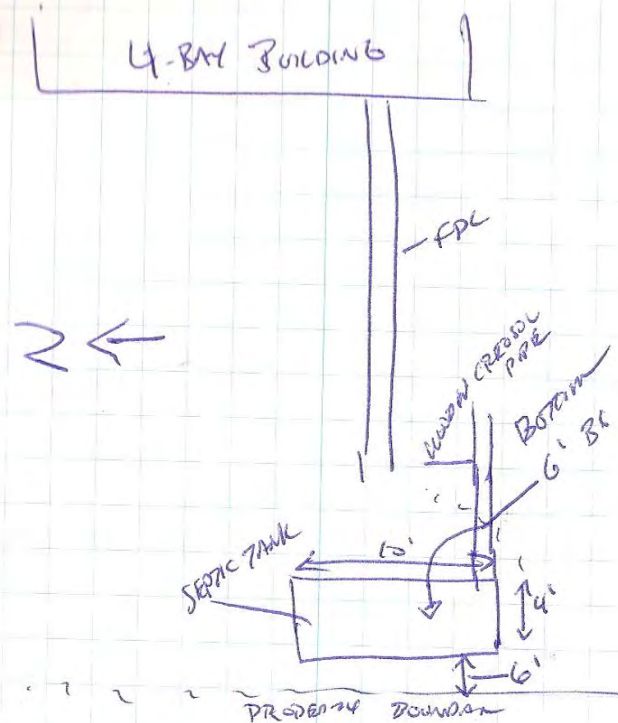 4-BAY BUILDING
FDC
N
WOODEN CREOSOL
PIPE
BOTTOM
6' BG
10'
SEPTIC TANK
4'
6'
PROPERTY BOUNDAR